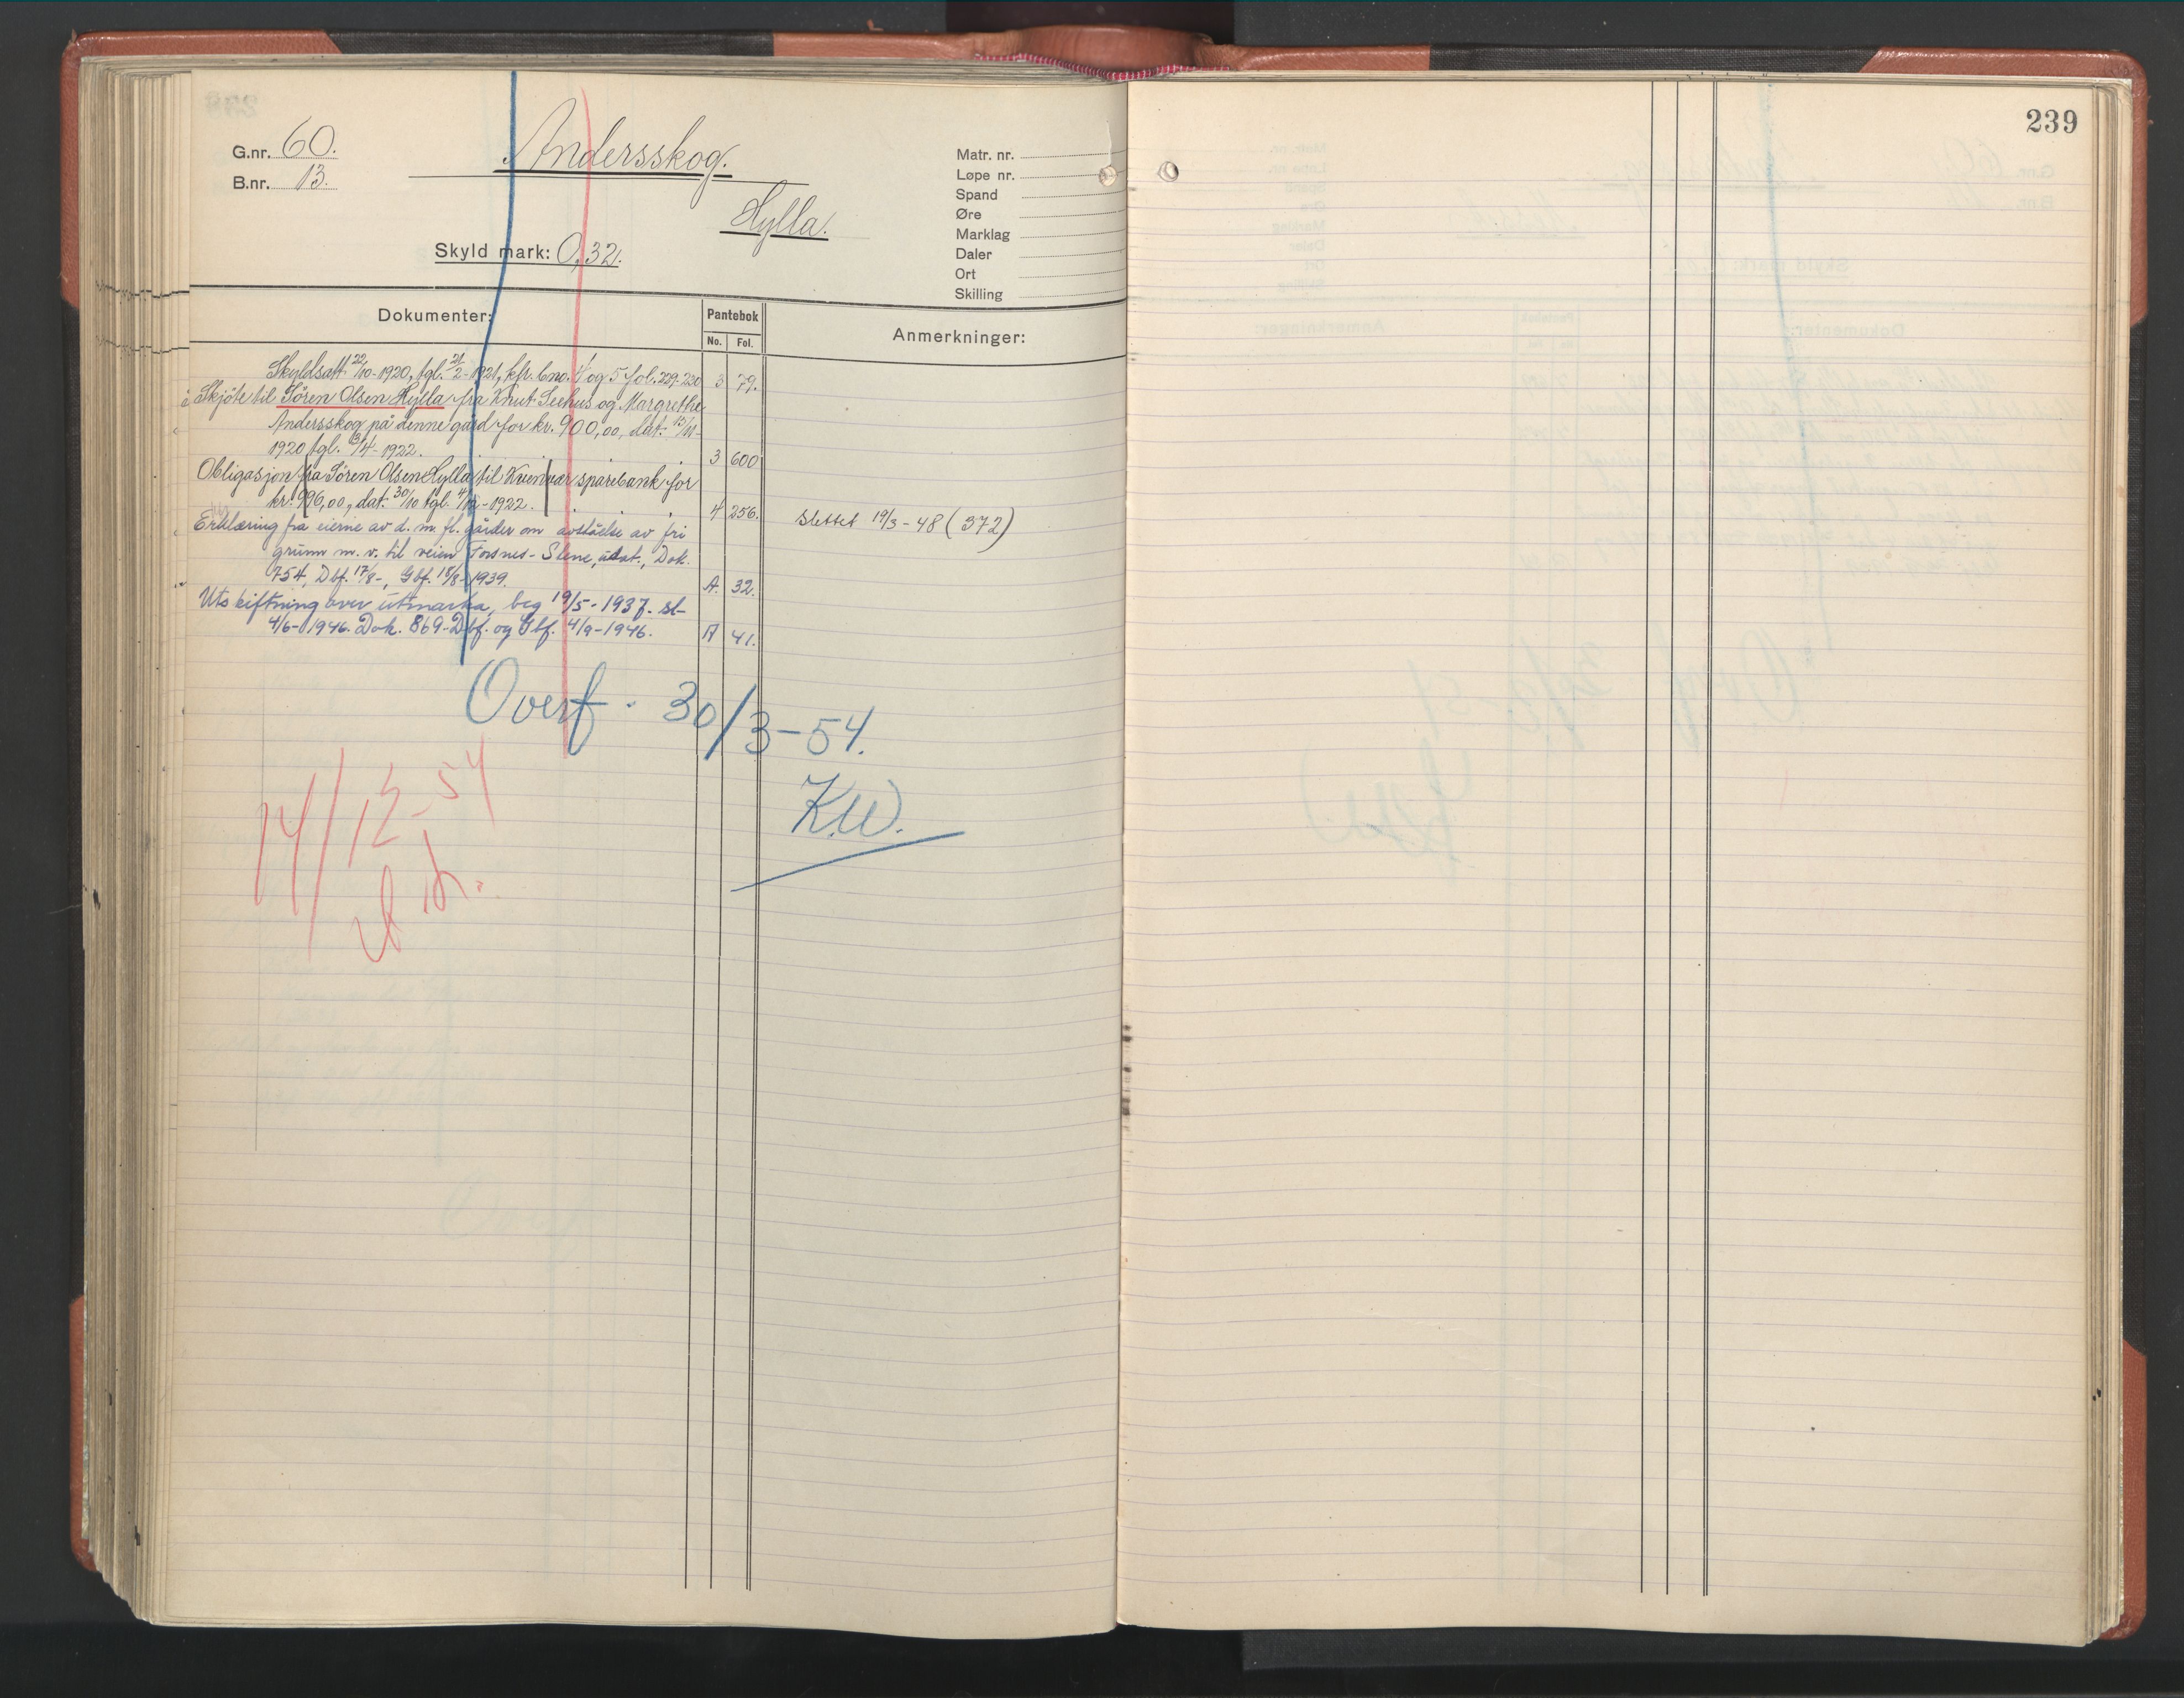 239
G.nr. 60.
B.nr. 13.
Andersskog.
Hylla.
Skyld mark: 0,32.
Matr. nr.
Løpe nr.
Spand
Øre
Marklag
Daler
Ort
Skilling
Dokumenter:
Pantebok
No. Fol.
Anmerkninger:
Skyldsatt 22/10-1920, tgl. 21/2-1921, kfr. bno. 4 og 5 fol. 229-230 3 79.
Skjöte til Sören Olsen Hylla fra Knut Seehus og Margrethe
Andersskog på denne gård for kr. 900,00, dat. 15/11-
1920 tgl. 3/4-1922. 3 600
Obligasjon fra Sören Olsen Hylla til Kvenvær sparebank for
kr. 996,00, dat. 30/10 tgl. 4/12-1922. 4 256. Slettet 19/3-48 (372)
Erklæring fra eierne av d. m. fl. gårder om avståelse av fri
grunn m. v. til veien Forsnes-Slene, udat., Dok.
754, Dbf. 17/8-, Gbf. 18/8-1939. A. 32.
Utskiftning over utmarka, beg 19/5-1937. sl-
4/6-1946. Dok. 869-Dbf. og Gbf. 4/9-1946. A 41.
Overf. 30/3-54.
K.W.
14/12-54